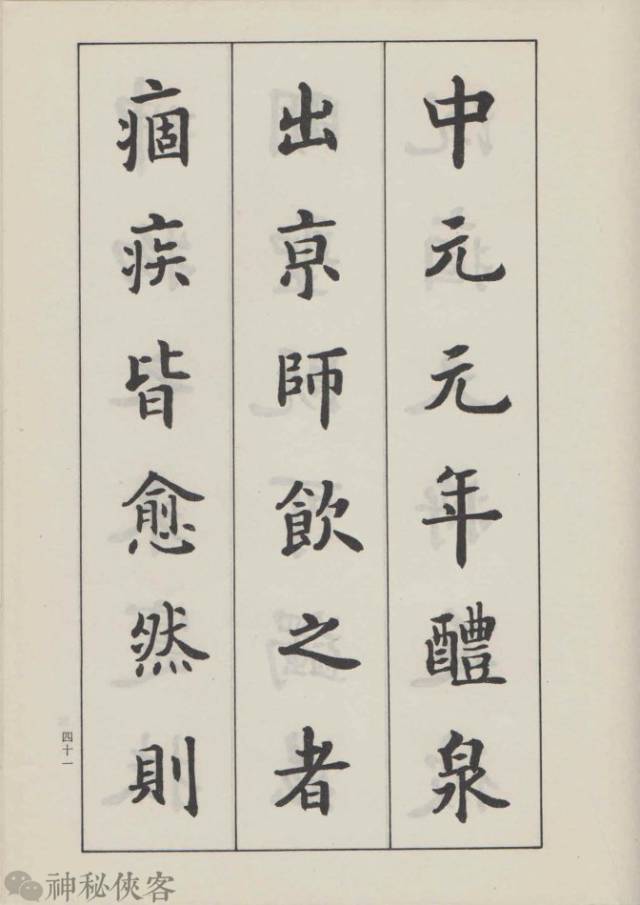 中元元年醴泉
出京師飲之者
痼疾皆愈然則
四十一
神秘俠客